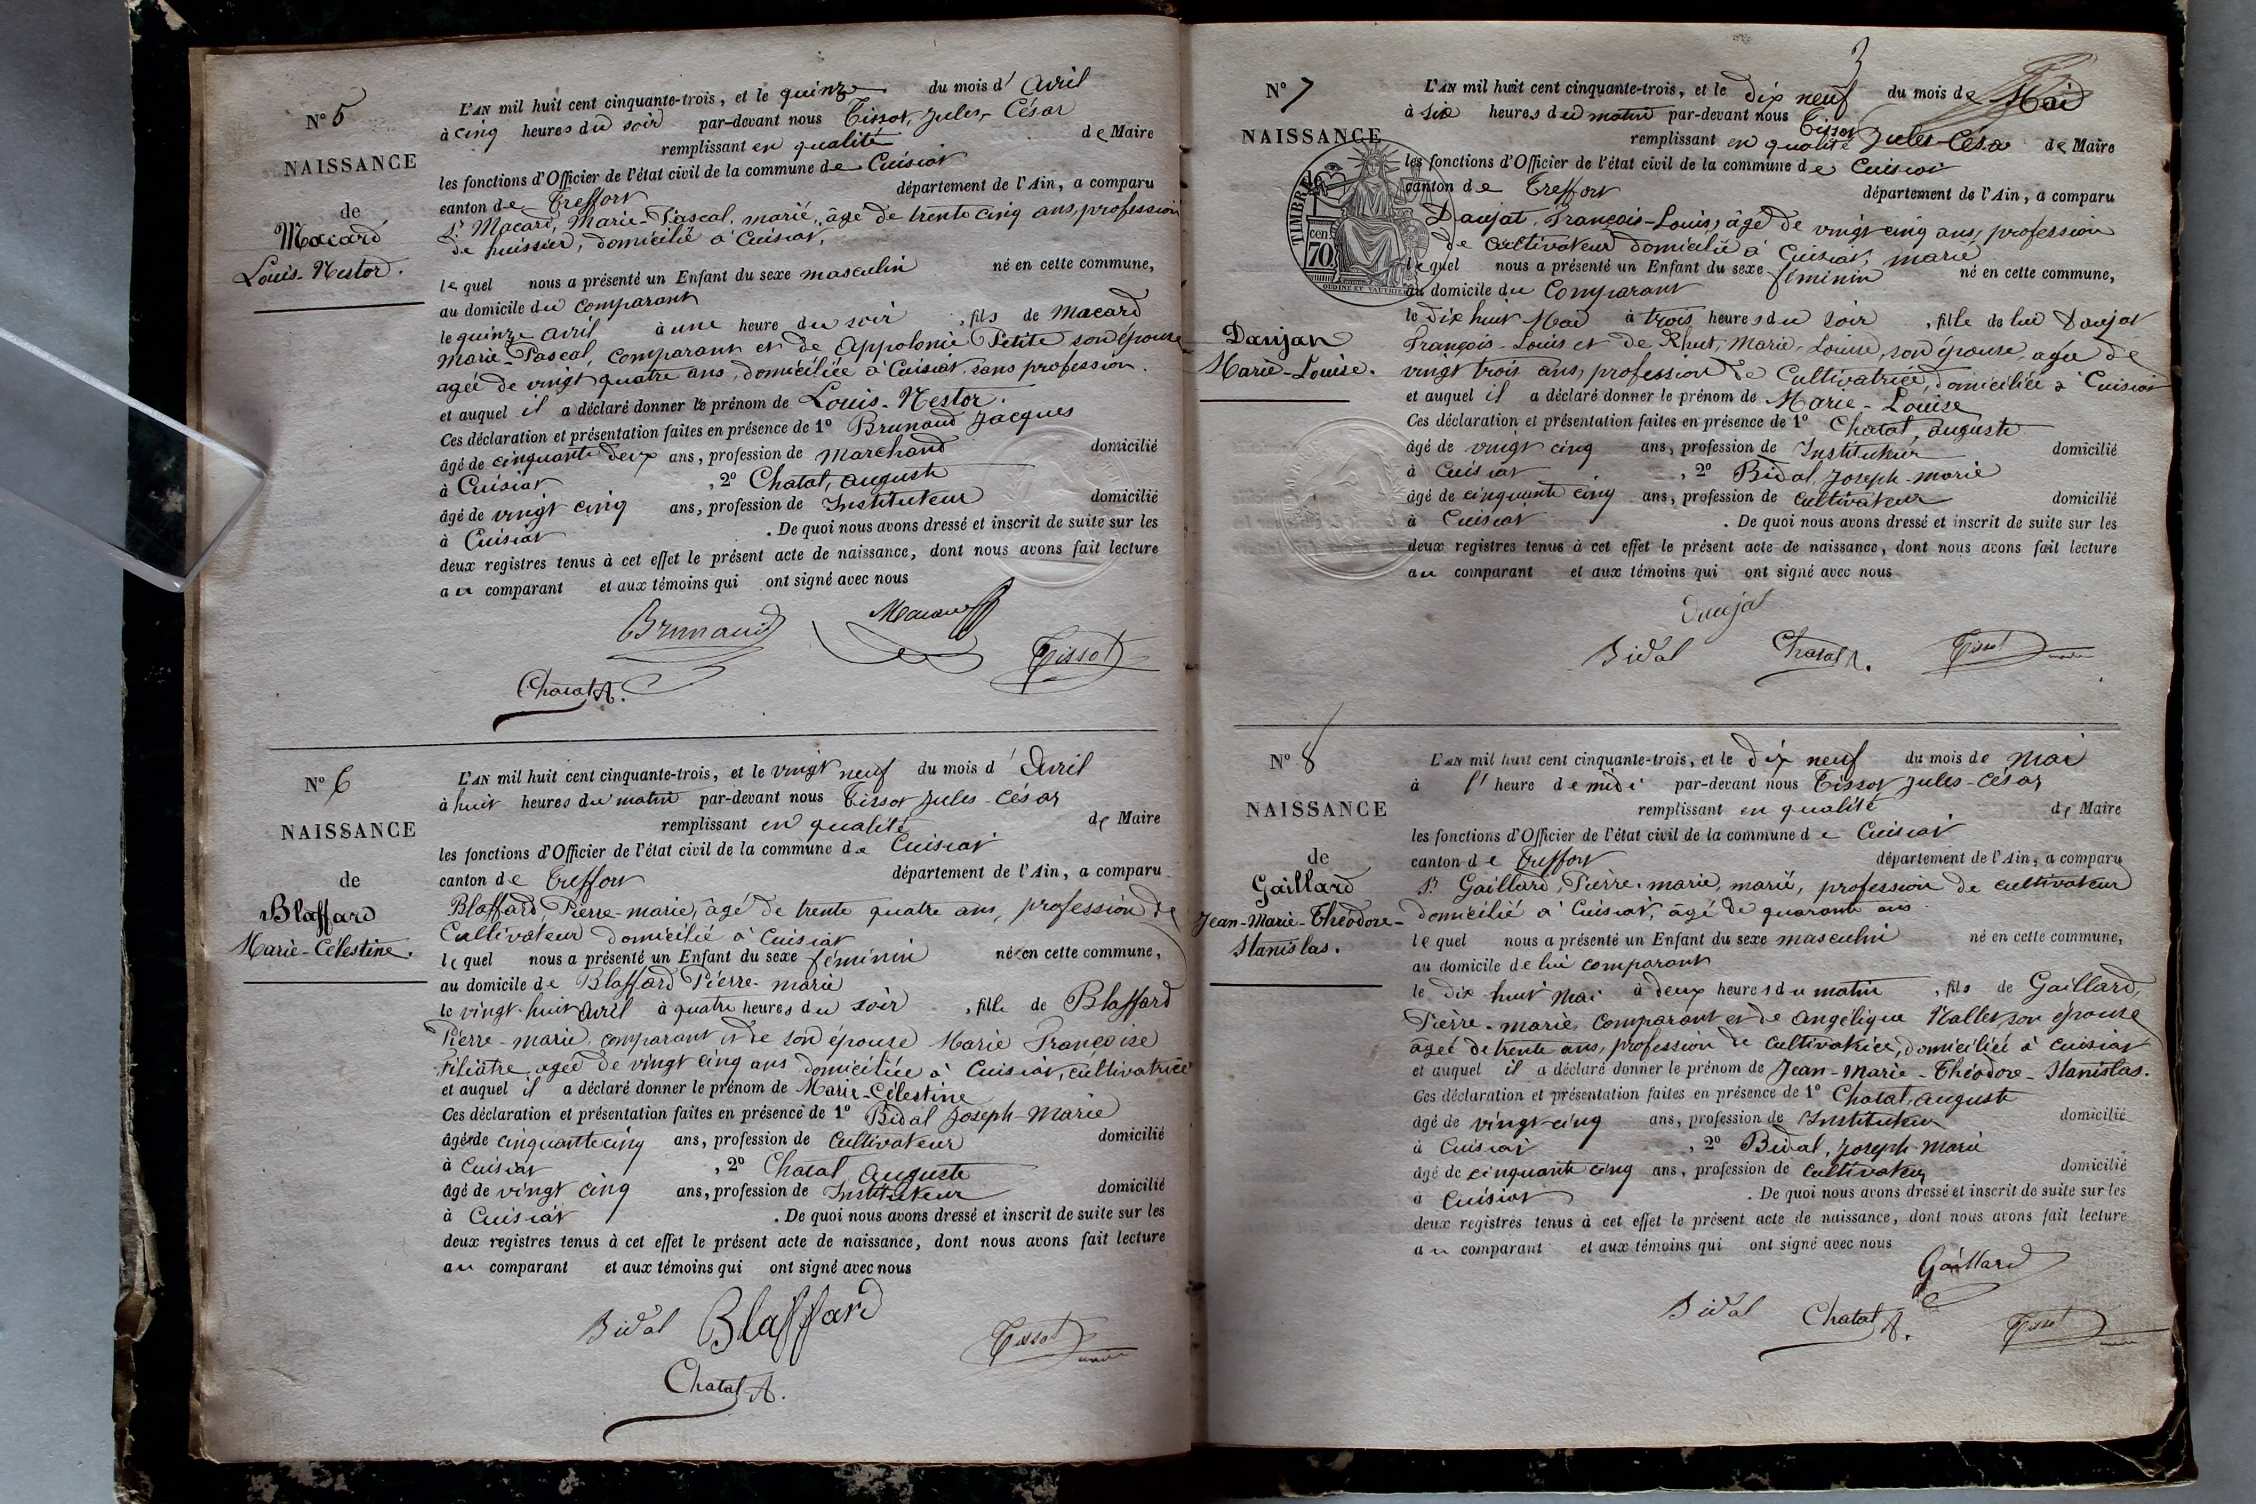 N° 5
NAISSANCE
de
Macard
Louis-Nestor.
L'AN mil huit cent cinquante-trois, et le quinze du mois d'avril
à cinq heures du soir par-devant nous Tissot, Jules-César
remplissant en qualité de Maire
les fonctions d'Officier de l'état civil de la commune de Cuisiat
canton de Treffort département de l'Ain, a comparu
Sr Macard, Marie-Pascal, marié, âgé de trente cinq ans, profession
de huissier, domicilié à Cuisiat,
lequel nous a présenté un Enfant du sexe masculin né en cette commune,
au domicile du comparant
le quinze avril à une heure du soir, fils de Macard
Marie-Pascal, comparant et de Appolonie Petite son épouse
agée de vingt quatre ans, domiciliée à Cuisiat, sans profession.
et auquel il a déclaré donner le prénom de Louis-Nestor.
Ces déclaration et présentation faites en présence de 1° Brunaud Jacques
âgé de cinquante deux ans, profession de marchand domicilié
à Cuisiat, 2° Chatal, auguste
âgé de vingt cinq ans, profession de Instituteur domicilié
à Cuisiat. De quoi nous avons dressé et inscrit de suite sur les
deux registres tenus à cet effet le présent acte de naissance, dont nous avons fait lecture
au comparant et aux témoins qui ont signé avec nous
Brunaud Macard
Tissot
Chatal A.
N° 6
NAISSANCE
de
Blaffard
Marie-Célestine.
L'AN mil huit cent cinquante-trois, et le vingt neuf du mois d'avril
à huit heures du matin par-devant nous Tissot Jules-César
remplissant en qualité de Maire
les fonctions d'Officier de l'état civil de la commune de Cuisiat
canton de Treffort département de l'Ain, a comparu
Blaffard, Pierre-marie, âgé de trente quatre ans, profession de
Cultivateur domicilié à Cuisiat
lequel nous a présenté un Enfant du sexe féminin né en cette commune,
au domicile de Blaffard Pierre-marie
le vingt-huit avril à quatre heures du soir, fille de Blaffard
Pierre-marie, comparant et de son épouse Marie Françoise
Filiatre agée de vingt cinq ans domiciliée à Cuisiat, cultivatrice
et auquel il a déclaré donner le prénom de Marie-Célestine
Ces déclaration et présentation faites en présence de 1° Bidal Joseph-Marie
âgé de cinquante cinq ans, profession de Cultivateur domicilié
à Cuisiat, 2° Chatal auguste
âgé de vingt cinq ans, profession de Instituteur domicilié
à Cuisiat. De quoi nous avons dressé et inscrit de suite sur les
deux registres tenus à cet effet le présent acte de naissance, dont nous avons fait lecture
au comparant et aux témoins qui ont signé avec nous
Bidal Blaffard
Tissot maire
Chatal A.
3
N° 7
NAISSANCE
de
Daujat
Marie-Louise.
TIMBRE
70 cent
OUDINÉ ET VAUTHIER
L'AN mil huit cent cinquante-trois, et le dix neuf du mois de Mai
à six heures du matin par-devant nous Tissot
remplissant en qualité Jules-César de Maire
les fonctions d'Officier de l'état civil de la commune de Cuisiat
canton de Treffort département de l'Ain, a comparu
Daujat, François-Louis, âgé de vingt cinq ans, profession
de cultivateur domicilié à Cuisiat, marié
lequel nous a présenté un Enfant du sexe féminin né en cette commune,
au domicile du Comparant
le dix huit Mai à trois heures du soir, fille de lui Daujat
François-Louis et de Rhut, Marie-Louise, son épouse, agée de
vingt trois ans, profession de Cultivatrice, domiciliée à Cuisiat
et auquel il a déclaré donner le prénom de Marie-Louise
Ces déclaration et présentation faites en présence de 1° Chatal, auguste
âgé de vingt cinq ans, profession de Instituteur domicilié
à Cuisiat, 2° Bidal, Joseph-marie
âgé de cinquante cinq ans, profession de Cultivateur domicilié
à Cuisiat. De quoi nous avons dressé et inscrit de suite sur les
deux registres tenus à cet effet le présent acte de naissance, dont nous avons fait lecture
au comparant et aux témoins qui ont signé avec nous
Daujat
Bidal Chatal A. Tissot maire
N° 8
NAISSANCE
de
Gaillard
Jean-Marie-Théodore-
Stanislas.
L'AN mil huit cent cinquante-trois, et le dix neuf du mois de mai
à l'heure de midi par-devant nous Tissot Jules-César
remplissant en qualité de Maire
les fonctions d'Officier de l'état civil de la commune de Cuisiat
canton de Treffort département de l'Ain, a comparu
Sr Gaillard, Pierre-marie, marié, profession de cultivateur
domicilié à Cuisiat, âgé de quarante ans
lequel nous a présenté un Enfant du sexe masculin né en cette commune,
au domicile de lui comparant
le dix huit mai à deux heures du matin, fils de Gaillard,
Pierre-marie, comparant et de angélique Nallet, son épouse
agée de trente ans, profession de cultivatrice, domiciliée à Cuisiat
et auquel il a déclaré donner le prénom de Jean-Marie-Théodore-Stanislas.
Ces déclaration et présentation faites en présence de 1° Chatal, auguste
âgé de vingt-cinq ans, profession de Instituteur domicilié
à Cuisiat, 2° Bidal, Joseph-marie
âgé de cinquante cinq ans, profession de cultivateur domicilié
à Cuisiat. De quoi nous avons dressé et inscrit de suite sur les
deux registres tenus à cet effet le présent acte de naissance, dont nous avons fait lecture
au comparant et aux témoins qui ont signé avec nous
Gaillard
Bidal Chatal A. Tissot maire